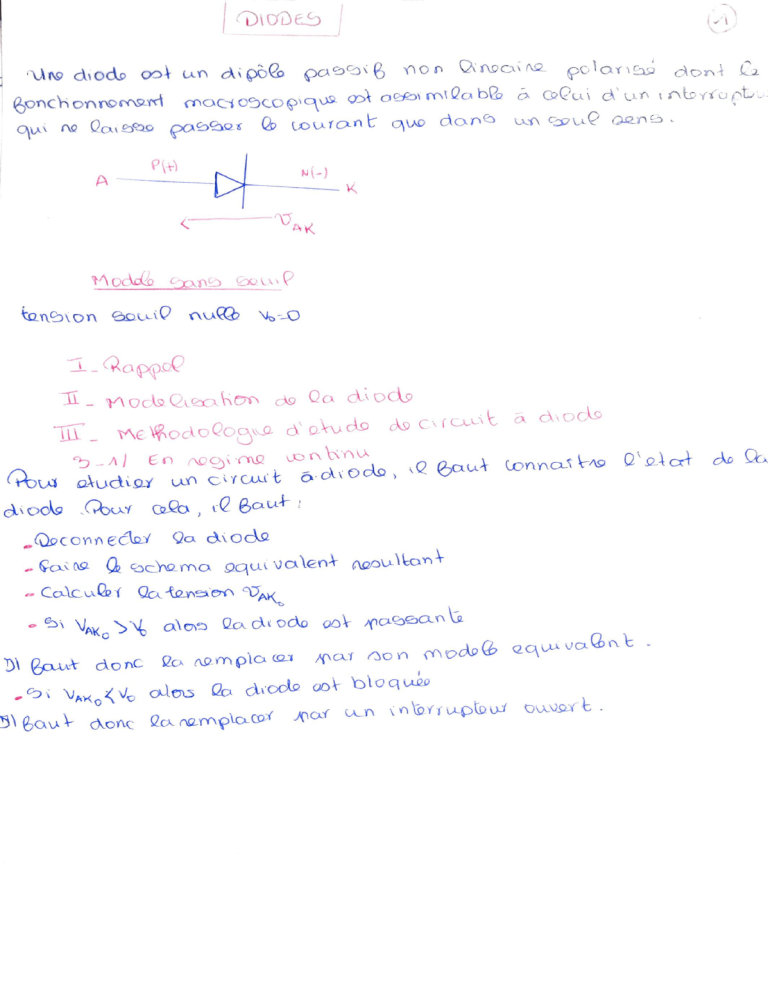 DIODES
1
Une diode est un dipôle passif non lineaire polarisé dont le
fonctionnement macroscopique est assimilable à celui d'un interrupt
qui ne laisse passer le courant que dans un seul sens.
A P(+) N(-) K
VAK
Modèle sans seuil
tension seuil nulle V0=0
I - Rappel
II - Modelisation de la diode
III - Methodologie d'etude de circuit à diode
3-1/ En regime continu
Pour etudier un circuit à diode, il faut connaitre l'etat de la
diode. Pour cela, il faut :
- Deconnecter la diode
- faire le schema equivalent resultant
- Calculer la tension VAK0
- Si VAK0 > V0 alors la diode est passante
Il faut donc la remplacer par son modele equivalent.
- Si VAK0 < V0 alors la diode est bloquée
Il faut donc la remplacer par un interrupteur ouvert.